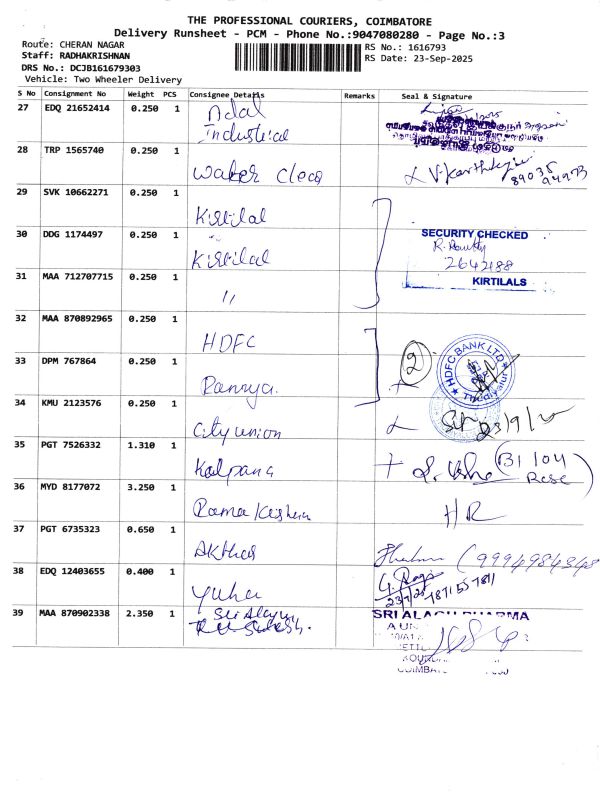 THE PROFESSIONAL COURIERS, COIMBATORE
Delivery Runsheet - PCM - Phone No.:9047080280 - Page No.:3
Route: CHERAN NAGAR
RS No.: 1616793
Staff: RADHAKRISHNAN
RS Date: 23-Sep-2025
DRS No.: DCJB161679303
Vehicle: Two Wheeler Delivery
S No Consignment No Weight PCS Consignee Details Remarks Seal & Signature
27 EDQ 21652414 0.250 1
Industrical
28 TRP 1565740 0.250 1
Water Cleaq
89035
94973
29 SVK 10662271 0.250 1
Kirtilal
30 DDG 1174497 0.250 1
Kirtilal
SECURITY CHECKED
2642188
KIRTILALS
31 MAA 712707715 0.250 1
"
32 MAA 870892965 0.250 1
HDFC
33 DPM 767864 0.250 1
Ramya.
2
HDFC BANK LTD
Thudiyalur
34 KMU 2123576 0.250 1
City union
23/9/25
35 PGT 7526332 1.310 1
Kalpana
(B1 104
Rose)
36 MYD 8177072 3.250 1
Rama Krishna
HR
37 PGT 6735323 0.650 1
Akthar
38 EDQ 12403655 0.400 1
Yuha
G. Raja
39 MAA 870902338 2.350 1
Sri Alagu
SRI ALAGU PHARMA